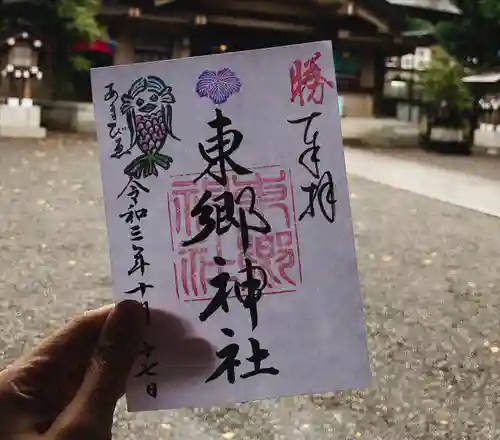 勝
奉拝
東郷神社
東郷神社
あまびゑ
令和三年十月 十七日